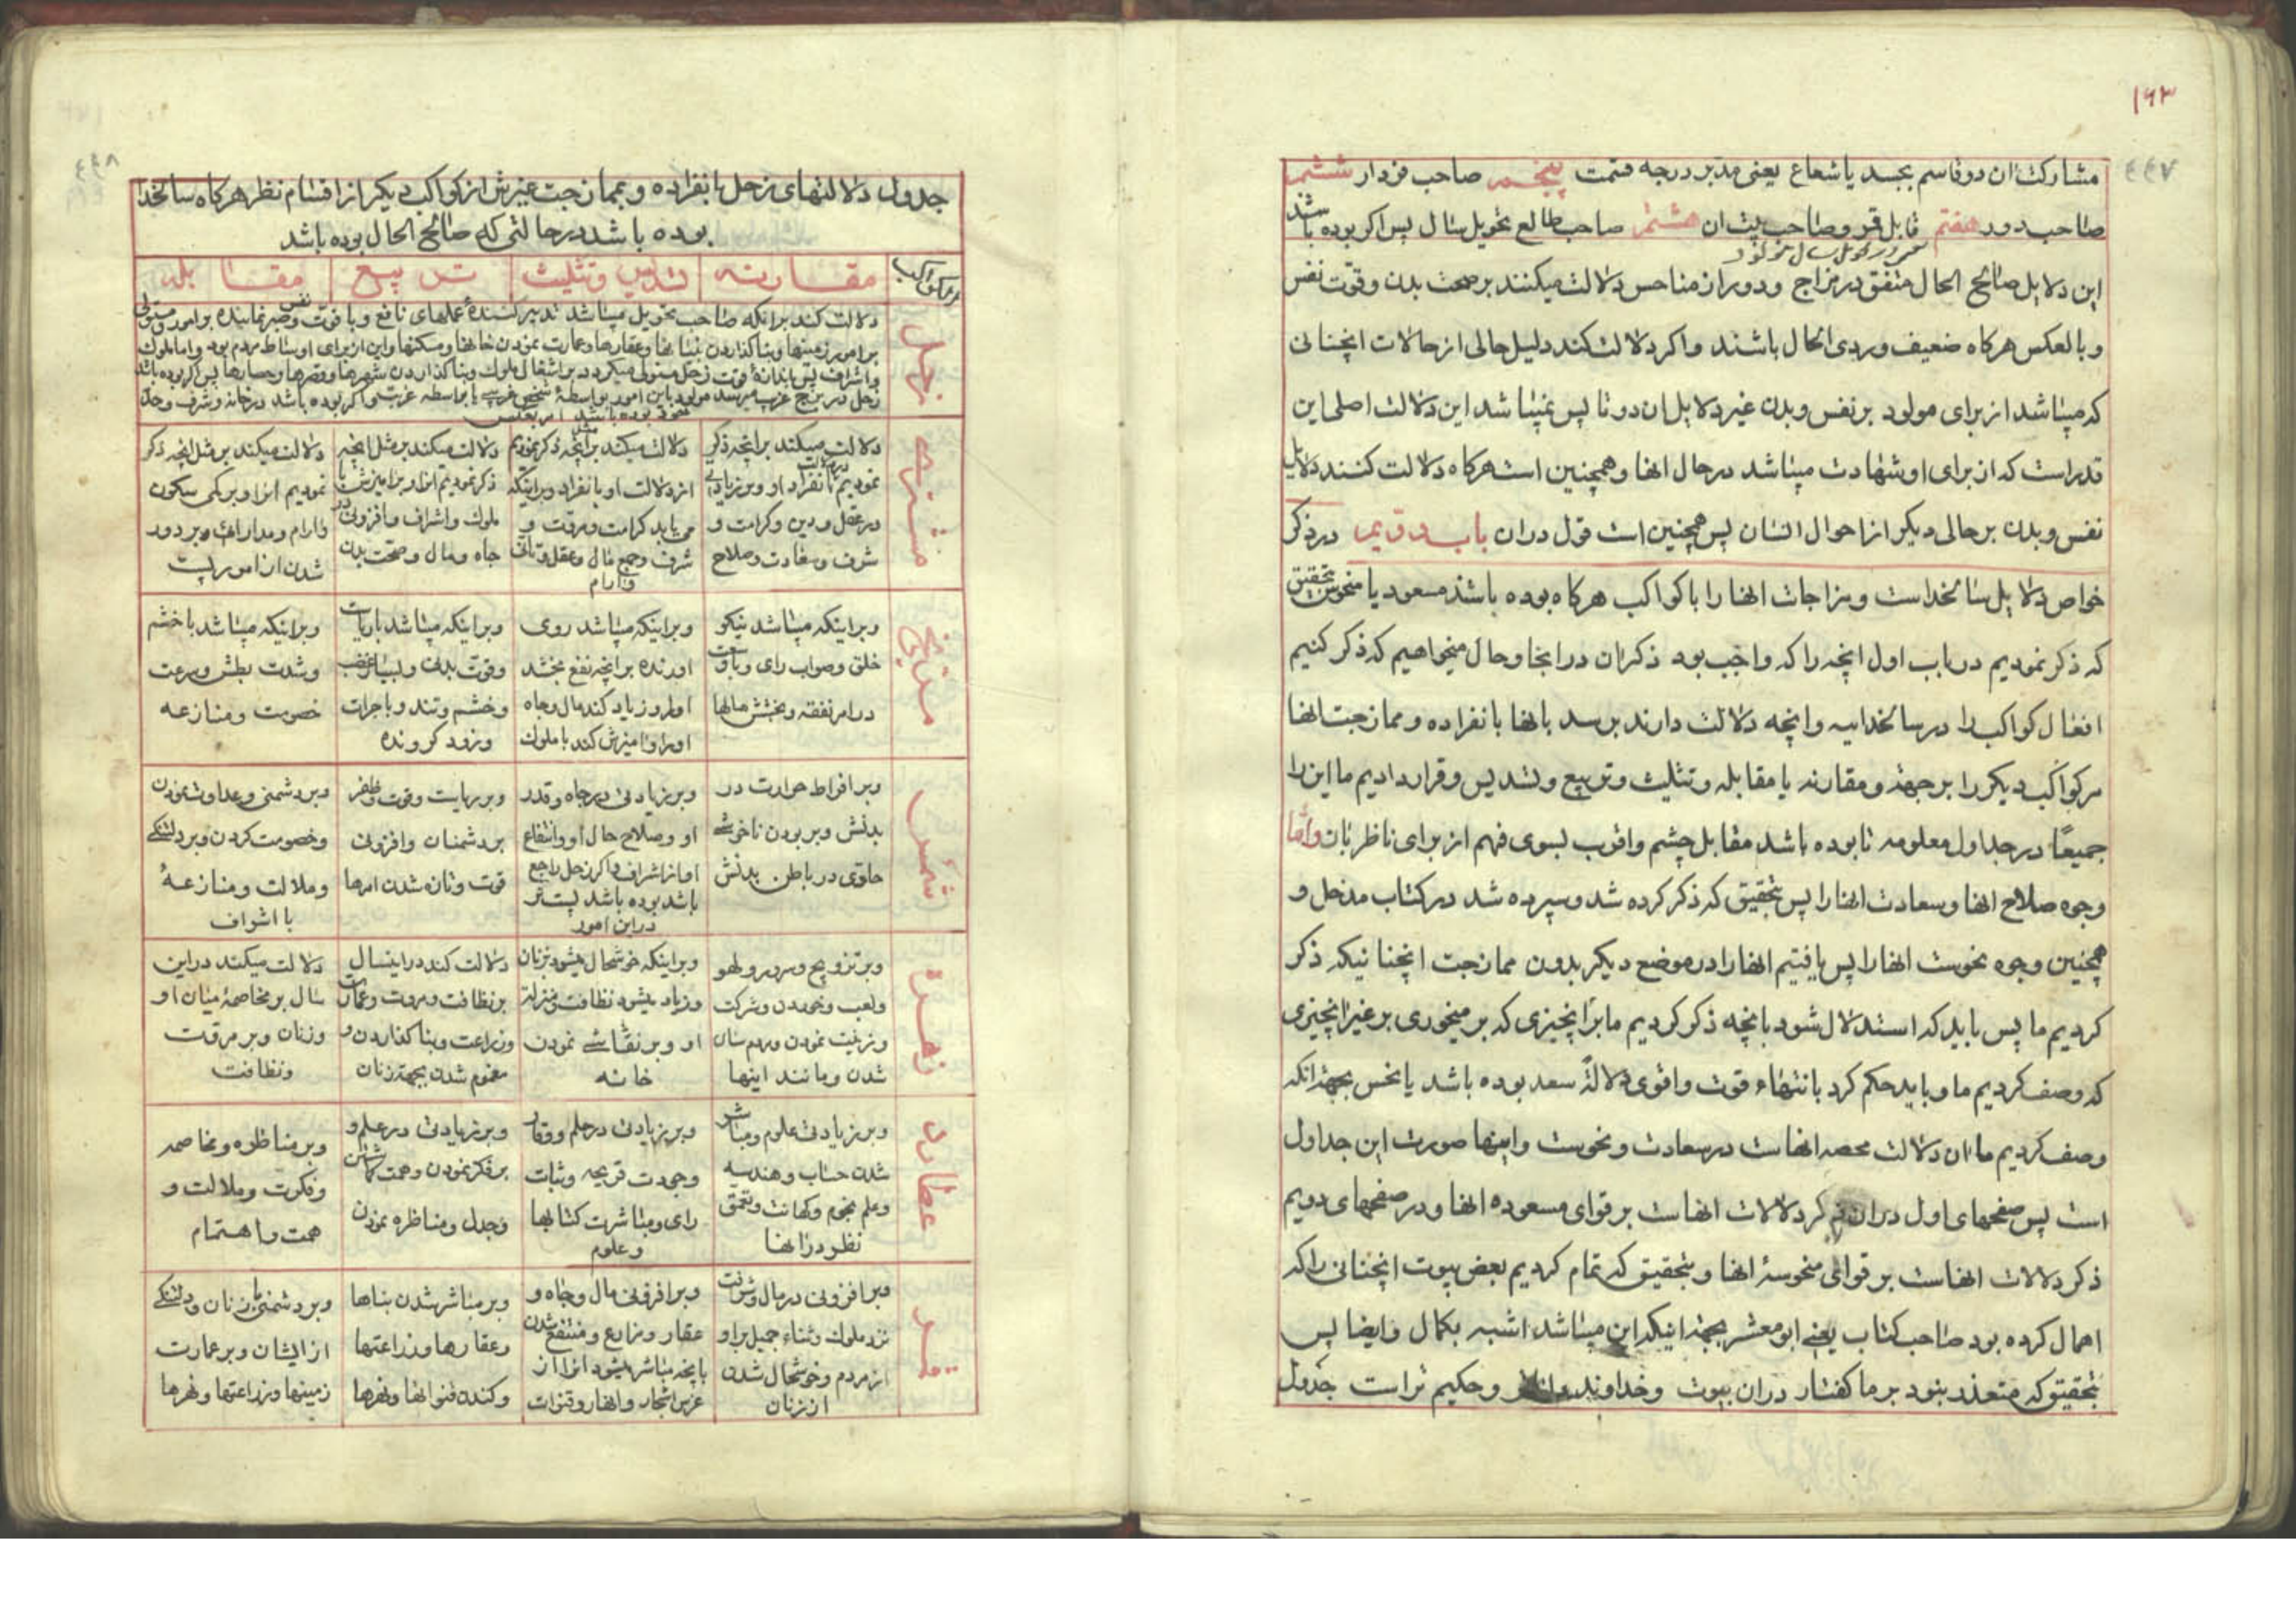 ۱۶۳
۴۴۷
مشارکت ان دو قاسم بجسد یا شعاع یعنی مدبر درجه قسمت پنجم صاحب فردار ششم
صاحب دور هفتم قابل قمر و صاحب بیت ان هشتم صاحب طالع تحویل سال پس اکر بوده باشند
این دلایل صالح الحال متفق در مزاج و دور از مناحس دلالت میکنند بر صحت بدن و قوت نفس
و بالعکس هرکاه ضعیف و ردی الحال باشند و اکر دلالت کند دلیل حالی از حالات انچنانی
که میباشد از برای مولود بر نفس و بدن غیر دلایل ان دو تا پس نمیباشد این دلالت اصلی این
قدر است که از برای او شهادت میباشد در حال انها و همچنین است هرکاه دلالت کنند دلایل
نفس و بدن بر حالی دیکر از احوال انسان پس همچنین است قول دران باب دویم در ذکر
خواص دلایل سالخداست و مزاجات انها را با کواکب هرکاه بوده باشند مسعود یا منحوس بتحقیق
که ذکر نمودیم در باب اول انچه را که واجب بود ذکر ان در انجا و حال میخواهیم که ذکر کنیم
افعال کواکب را در سالخداییه و انچه دلالت دارند بر سد بانها بانفراده و ممازجت انها
مر کواکب دیکر را بر جهة و مقارنه یا مقابله و تثلیث و تربیع و تسدیس و قرار دادیم ما این را
جمیعًا در جداول معلومه تا بوده باشد مقابل چشم و اقرب بسوی فهم از برای ناظر بان و اما
وجوه صلاح انها و سعادت انها را پس بتحقیق که ذکر کرده شد و سپرده شد در کتاب مدخل و
همچنین وجوه نحوست انها را پس یافتیم انها را در موضع دیکر بدون ممازجت انچنانیکه ذکر
کردیم ما پس باید که استدلال شود بانچه ذکر کردیم ما بر انچیزی که بر میخوری بر غیر انچیزی
که وصف کردیم ما و باید حکم کرد بانتهاء قوت و اقوی دلالة سعد بوده باشد یا نحس بجهة انکه
وصف کردیم ما ان دلالت محصه انهاست در سعادت و نحوست و اینها صورت این جداول
است پس صفحهای اول دران ذکر دلالات انهاست بر قوای مسعوده انها و در صفحهای دویم
ذکر دلالات انهاست بر قوای منحوسهٔ انها و بتحقیق که تمام کردیم بعض بیوت انچنانی را که
اهمال کرده بود صاحب کتاب یعنی ابو معشر بجهة اینکه این میباشد اشبه بکمال و ایضا پس
بتحقیق که متعذر بنود بر ما کفتار دران بیوت و خداوند و حکیم تر است جدول
۴۴۸
جدول دلالتهای زحل بانفراده و بممازجت غیرش از کواکب دیکر از اقسام نظر هرکاه سالخدا
بوده باشد در حالتی که صالح الحال بوده باشد
کواکب مقارنه تسدیس و تثلیث تربیع مقابله
زحل
دلالت کند برانکه صاحب تحویل میباشد تدبیر کنندهٔ عملهای نافع و با قوت نفس و صبر نماینده بر امور و مستولی
بر امور زمینها و بنا کذاردن بناها و عقارها و عمارت نمودن خانها و مسکنها و این از برای اوساط مردم بود و اما ملوک
و اشراف پس باندازهٔ قوت زحل مستولی میکردد بر اشغال ملوک و بنا کذاردن شهرها و قصرها و حصارها پس اکر بوده باشد
زحل در برج غریب میرسد مولود باین امور بواسطهٔ شخصی غریب یا بواسطه غربت و اکر بوده باشد در خانه و شرف و حظ
خود بوده باشد امر بعکس
مشتری
دلالت میکند برانچه ذکر
نمودیم در دلالت بانفراد او و بر زیادتی
در عقل و دین و کرامت و
شرف و سعادت و صلاح
دلالت میکند بر مثل انچه ذکر نمودیم
از دلالت او بانفراد و براینکه
می یابد کرامت و مرقت و
شرف و جمع مال و عقل و تانی
و ارام
دلالت میکند بر مثل انچه
ذکر نمودیم انرا و بر امیزش با
ملوک و اشراف و افزونی در
جاه و مال و صحت بدن
دلالت میکند بر مثل انچه ذکر
نمودیم انرا و بر کمی سکون
و ارام و مدارائی و بر دور
شدن از امور پست
مریخ
و براینکه میباشد نیکو
خلق و صواب رای و باقوت
در امر نفقه و بخشش مالها
و براینکه میباشد روی
اورنده بر انچه نفع بخشد
او را و زیاد کند مال و جاه
او را و امیزش کند با ملوک
و براینکه میباشد باریاست
و قوت بدنی و بسیار غضب
و خشم و تند و باجرات
و زود کرونده
و براینکه میباشد با خشم
و شدت بطش و سرعت
خصومت و منازعه
شمس
و بر افراط حرارت در
بدنش و بر بودن ناخوشی
حاوی در باطن بدنش
و بر زیادتی در جاه و قدر
او و صلاح حال او و انتفاع
او از اشراف و اکر زحل راجع
باشد بوده باشد پست تر
در این امور
و بر ریاست و قوت و ظفر
بر دشمنان و افزونی
قوت و تازه شدن امرها
و بر دشمنی و عداوت نمودن
و خصومت کردن و بر دلتنکی
و ملالت و منازعهٔ
با اشراف
زهره
و بر تزویج و سرور و لهو
و لعب و خوردن و شرکت
و زینت نمودن و مردم سان
شدن و مانند اینها
و براینکه خوشحال میشود بزنان
و زیاد میشود نظافت و منزلت
او و بر نقاشی نمودن
خانه
دلالت کند در اینسال
بر نظافت و مروت و عمارت
و زراعت و بنا کذاردن و
مغموم شدن بجهة زنان
دلالت میکند در این
سال بر مخاصمهٔ میان او
و زنان و بر مرقت
و نظافت
عطارد
و بر زیادتی علوم و مباشر
شدن حساب و هندسه
و علم نجوم و کهانت و تعمق
نظر در انها
و بر زیادتی در حلم و وقار
و جودت قریحه و ثبات
رای و مباشرت کتابها
و علوم
و بر زیادتی در علم و
بر فکر نمودن و همت کماشتن
و جدل و مناظره نمودن
و بر مناظره و مخاصمه
و فکرت و ملالت و
همت و اهتمام
قمر
و بر افزونی در مال و شرافت
نزد ملوک و ثناء جمیل بر او
از مردم و خوشحال شدن
از زنان
و بر افزونی مال و جاه و
عقار و مزارع و منتفع شدن
بانچه مباشر میشود انرا از
غرس اشجار و انهار و قنوات
و بر مباشر شدن بناها
و عقارها و زراعتها
و کندن قنواتها و نهرها
و بر دشمنی با زنان و دلتنکی
از ایشان و بر عمارت
زمینها و زراعتها و نهرها